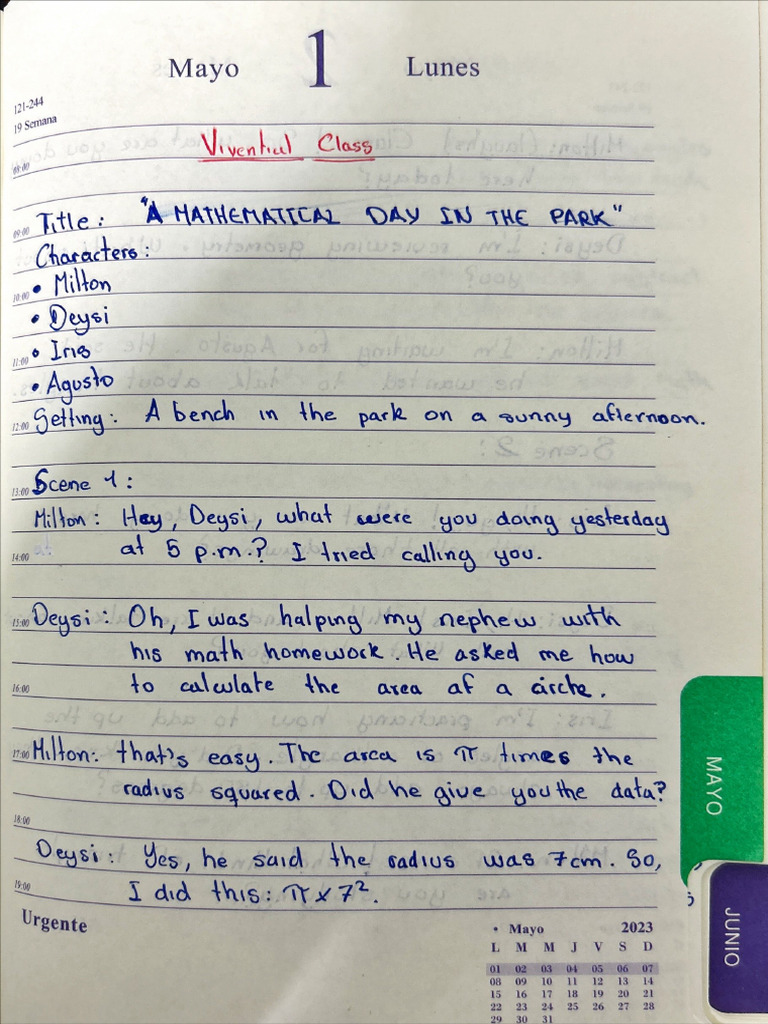 Mayo 1 Lunes
121-244
19 Semana
08:00
Vivential Class
09:00 Title: "A MATHEMATICAL DAY IN THE PARK"
Characters:
10:00 • Milton
• Deysi
11:00 • Iris
• Agusto
12:00 Setting: A bench in the park on a sunny afternoon.
13:00 Scene 1:
Milton: Hey, Deysi, what were you doing yesterday
14:00 at 5 p.m.? I tried calling you.
15:00 Deysi: Oh, I was halping my nephew with
his math homework. He asked me how
16:00 to calculate the area of a circle.
17:00 Milton: that's easy. The area is π times the
radius squared. Did he give you the data?
18:00
Deysi: Yes, he said the radius was 7cm. So,
19:00 I did this: π x 7².
Urgente
• Mayo 2023
L M M J V S D
01 02 03 04 05 06 07
08 09 10 11 12 13 14
15 16 17 18 19 20 21
22 23 24 25 26 27 28
29 30 31
MAYO
JUNIO